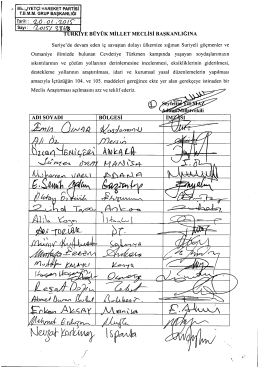 MİLLİYETÇİ HAREKET PARTİSİ
T.B.M.M. GRUP BAŞKANLIĞI
Tarih : 20.01.2015
Sayı :
TÜRKİYE BÜYÜK MİLLET MECLİSİ BAŞKANLIĞINA
Suriye'de devam eden iç savaştan dolayı ülkemize sığınan Suriyeli göçmenler ve
Osmaniye ilimizde bulunan Cevdetiye Türkmen kampında yaşayan soydaşlarımızın
sıkıntılarının ve çözüm yollarının derinlemesine incelenmesi, eksikliklerinin giderilmesi,
destekleme yollarının araştırılması, idari ve kurumsal yasal düzenlemelerin yapılması
amacıyla İçtüzüğün 104. ve 105. maddeleri gereğince ekte yer alan gerekçeye istinaden bir
Meclis Araştırması açılmasını arz ve teklif ederiz.
Seyfettin YILMAZ
Adana Milletvekili
ADI SOYADI BÖLGESİ İMZASI
Emin ÇINAR Kastamonu
Ali Öz Mersin
ÖZCAN YENİÇERİ ANKARA
Sümer ORAL MANİSA
Muharrem VARLI ADANA
Gaziantep
Oktay Öztürk Erzurum
Zühal Topcu Ankara
Sakarya
Mustafa Kalaycı Konya
Reşat Doğru Tokat
Ahmet Duran Bulut Balıkesir
Erkan AKÇAY Manisa
Mehmet Erdoğan Muğla
Nevzat Korkmaz Isparta